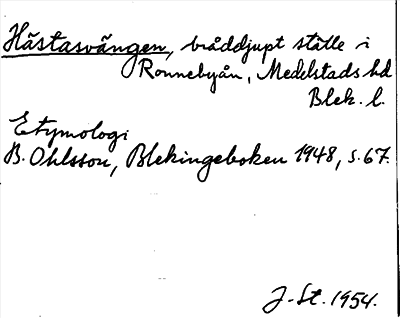 Hästasvängen, bråddjupt ställe i
Ronnebyån, Medelstads hd
Blek. l.
Etymologi
B. Ohlsson, Blekingeboken 1948, s. 67.
J-St. 1954.